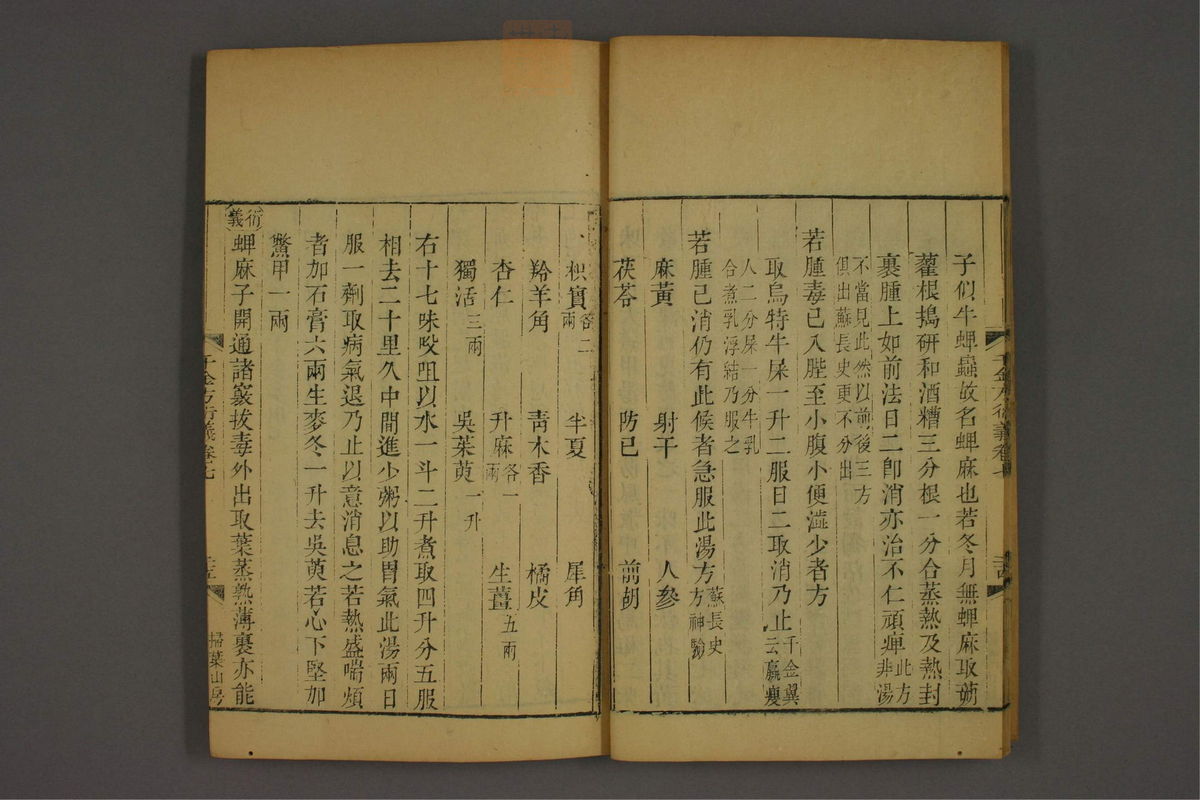 子似牛蜱蟲故名蜱麻也若冬月無蜱麻取蒴
藋根搗研和酒糟三分根一分合蒸熱及熱封
裹腫上如前法日二卽消亦治不仁頑痺此方非湯
不當見此然以前後三方俱出蘇長史更不分出
若腫毒已入䏶至小腹小便澁少者方
取烏特牛屎一升二服日二取消乃止千金翼云羸瘦
人二分屎一分牛乳合煮乳浮結乃服之
若腫已消仍有此候者急服此湯方蘇長史方神驗
麻黃 射干 人參
茯苓 防已 前胡
千金方衍義卷七
枳實各二兩 半夏 犀角
羚羊角 靑木香 橘皮
杏仁 升麻各一兩 生薑五兩
獨活三兩 吳茱萸一升
右十七味㕮咀以水一斗二升煮取四升分五服
相去二十里久中間進少粥以助胃氣此湯兩日
服一劑取病氣退乃止以意消息之若熱盛喘煩
者加石膏六兩生麥冬一升去吳萸若心下堅加
鱉甲一兩
衍義 蜱麻子開通諸竅拔毒外出取葉蒸熟薄裹亦能
千金方衍義卷七 掃葉山房